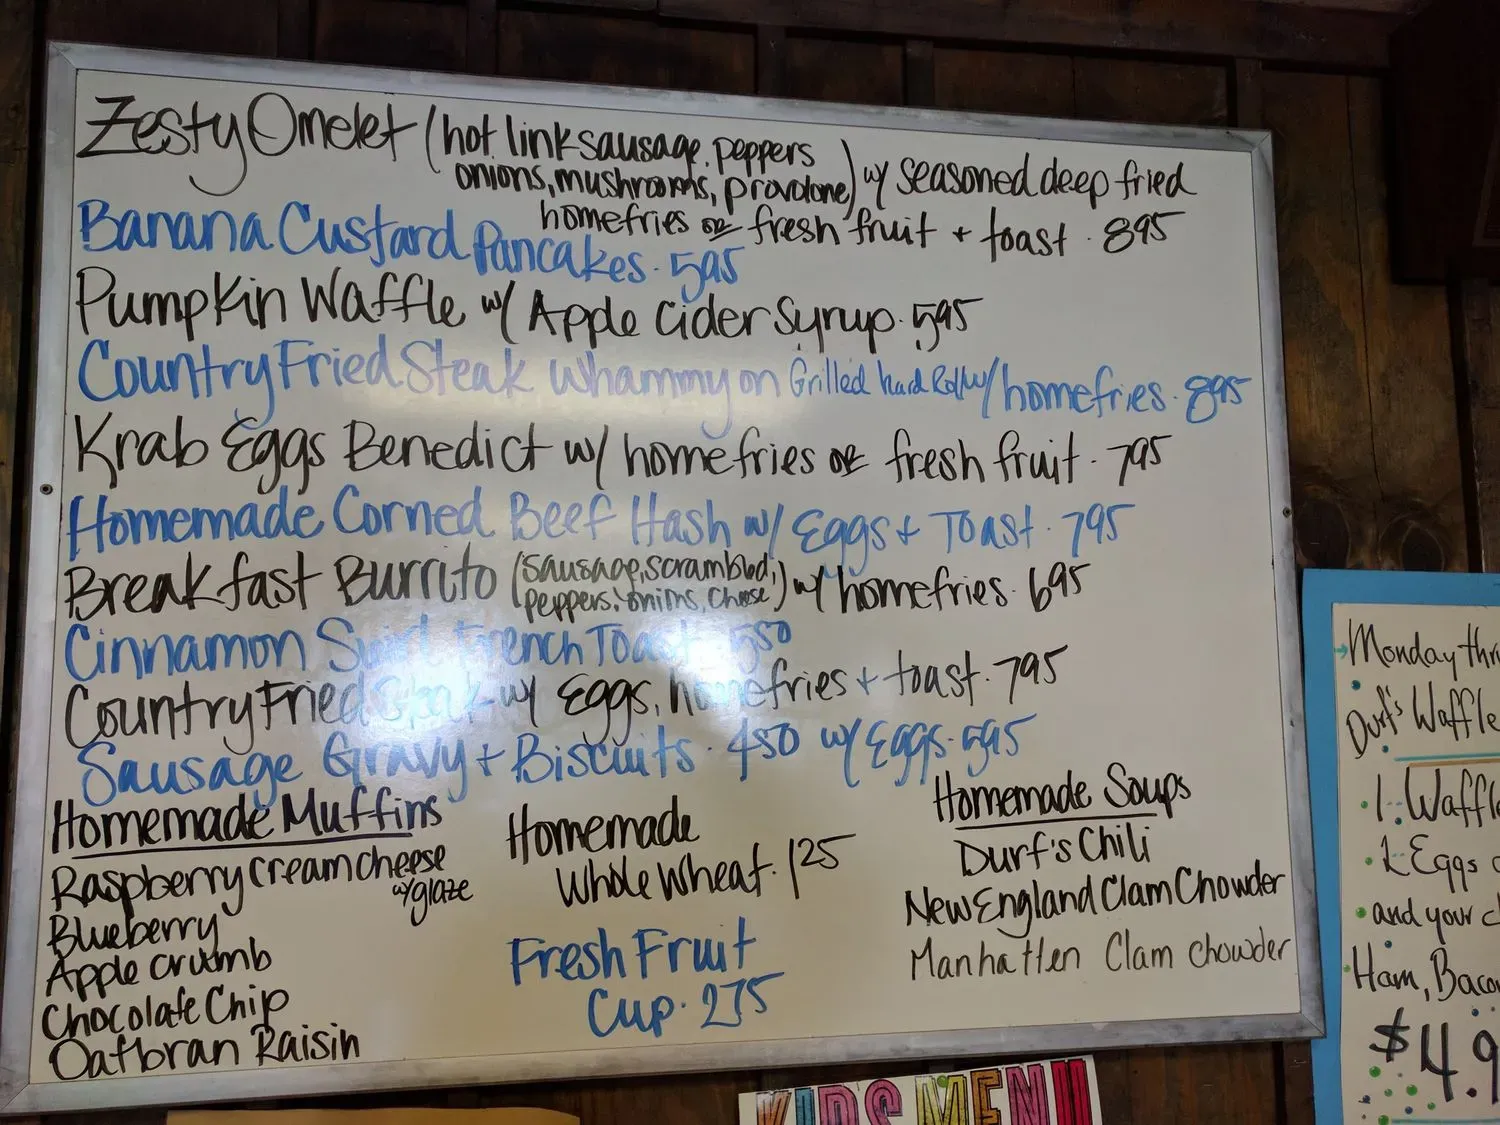 Zesty Omelet (hot link sausage, peppers
onions, mushrooms, provolone) w/ seasoned deep fried
homefries or fresh fruit + toast · 895
Banana Custard Pancakes · 595
Pumpkin Waffle w/ Apple Cider Syrup · 595
Country Fried Steak Whammy on Grilled hard Roll w/ homefries · 895
Krab Eggs Benedict w/ homefries or fresh fruit · 795
Homemade Corned Beef Hash w/ Eggs + Toast · 795
Breakfast Burrito (sausage, scrambled,
peppers, onions, cheese) w/ homefries · 695
Cinnamon Swirl French Toast · 550
Country Fried Steak w/ Eggs, homefries + toast · 795
Sausage Gravy + Biscuits · 450 w/ Eggs · 595
Homemade Muffins
Raspberry Cream Cheese
w/ glaze
Blueberry
Apple crumb
Chocolate Chip
Oatbran Raisin
Homemade
Whole Wheat · 125
Fresh Fruit
Cup · 275
Homemade Soups
Durf's Chili
New England Clam Chowder
Manhatten Clam chowder
Monday thr
Durf's Waffle
1 Waffle
2 Eggs
and your
Ham, Baco
$4.9
KIDS MENU